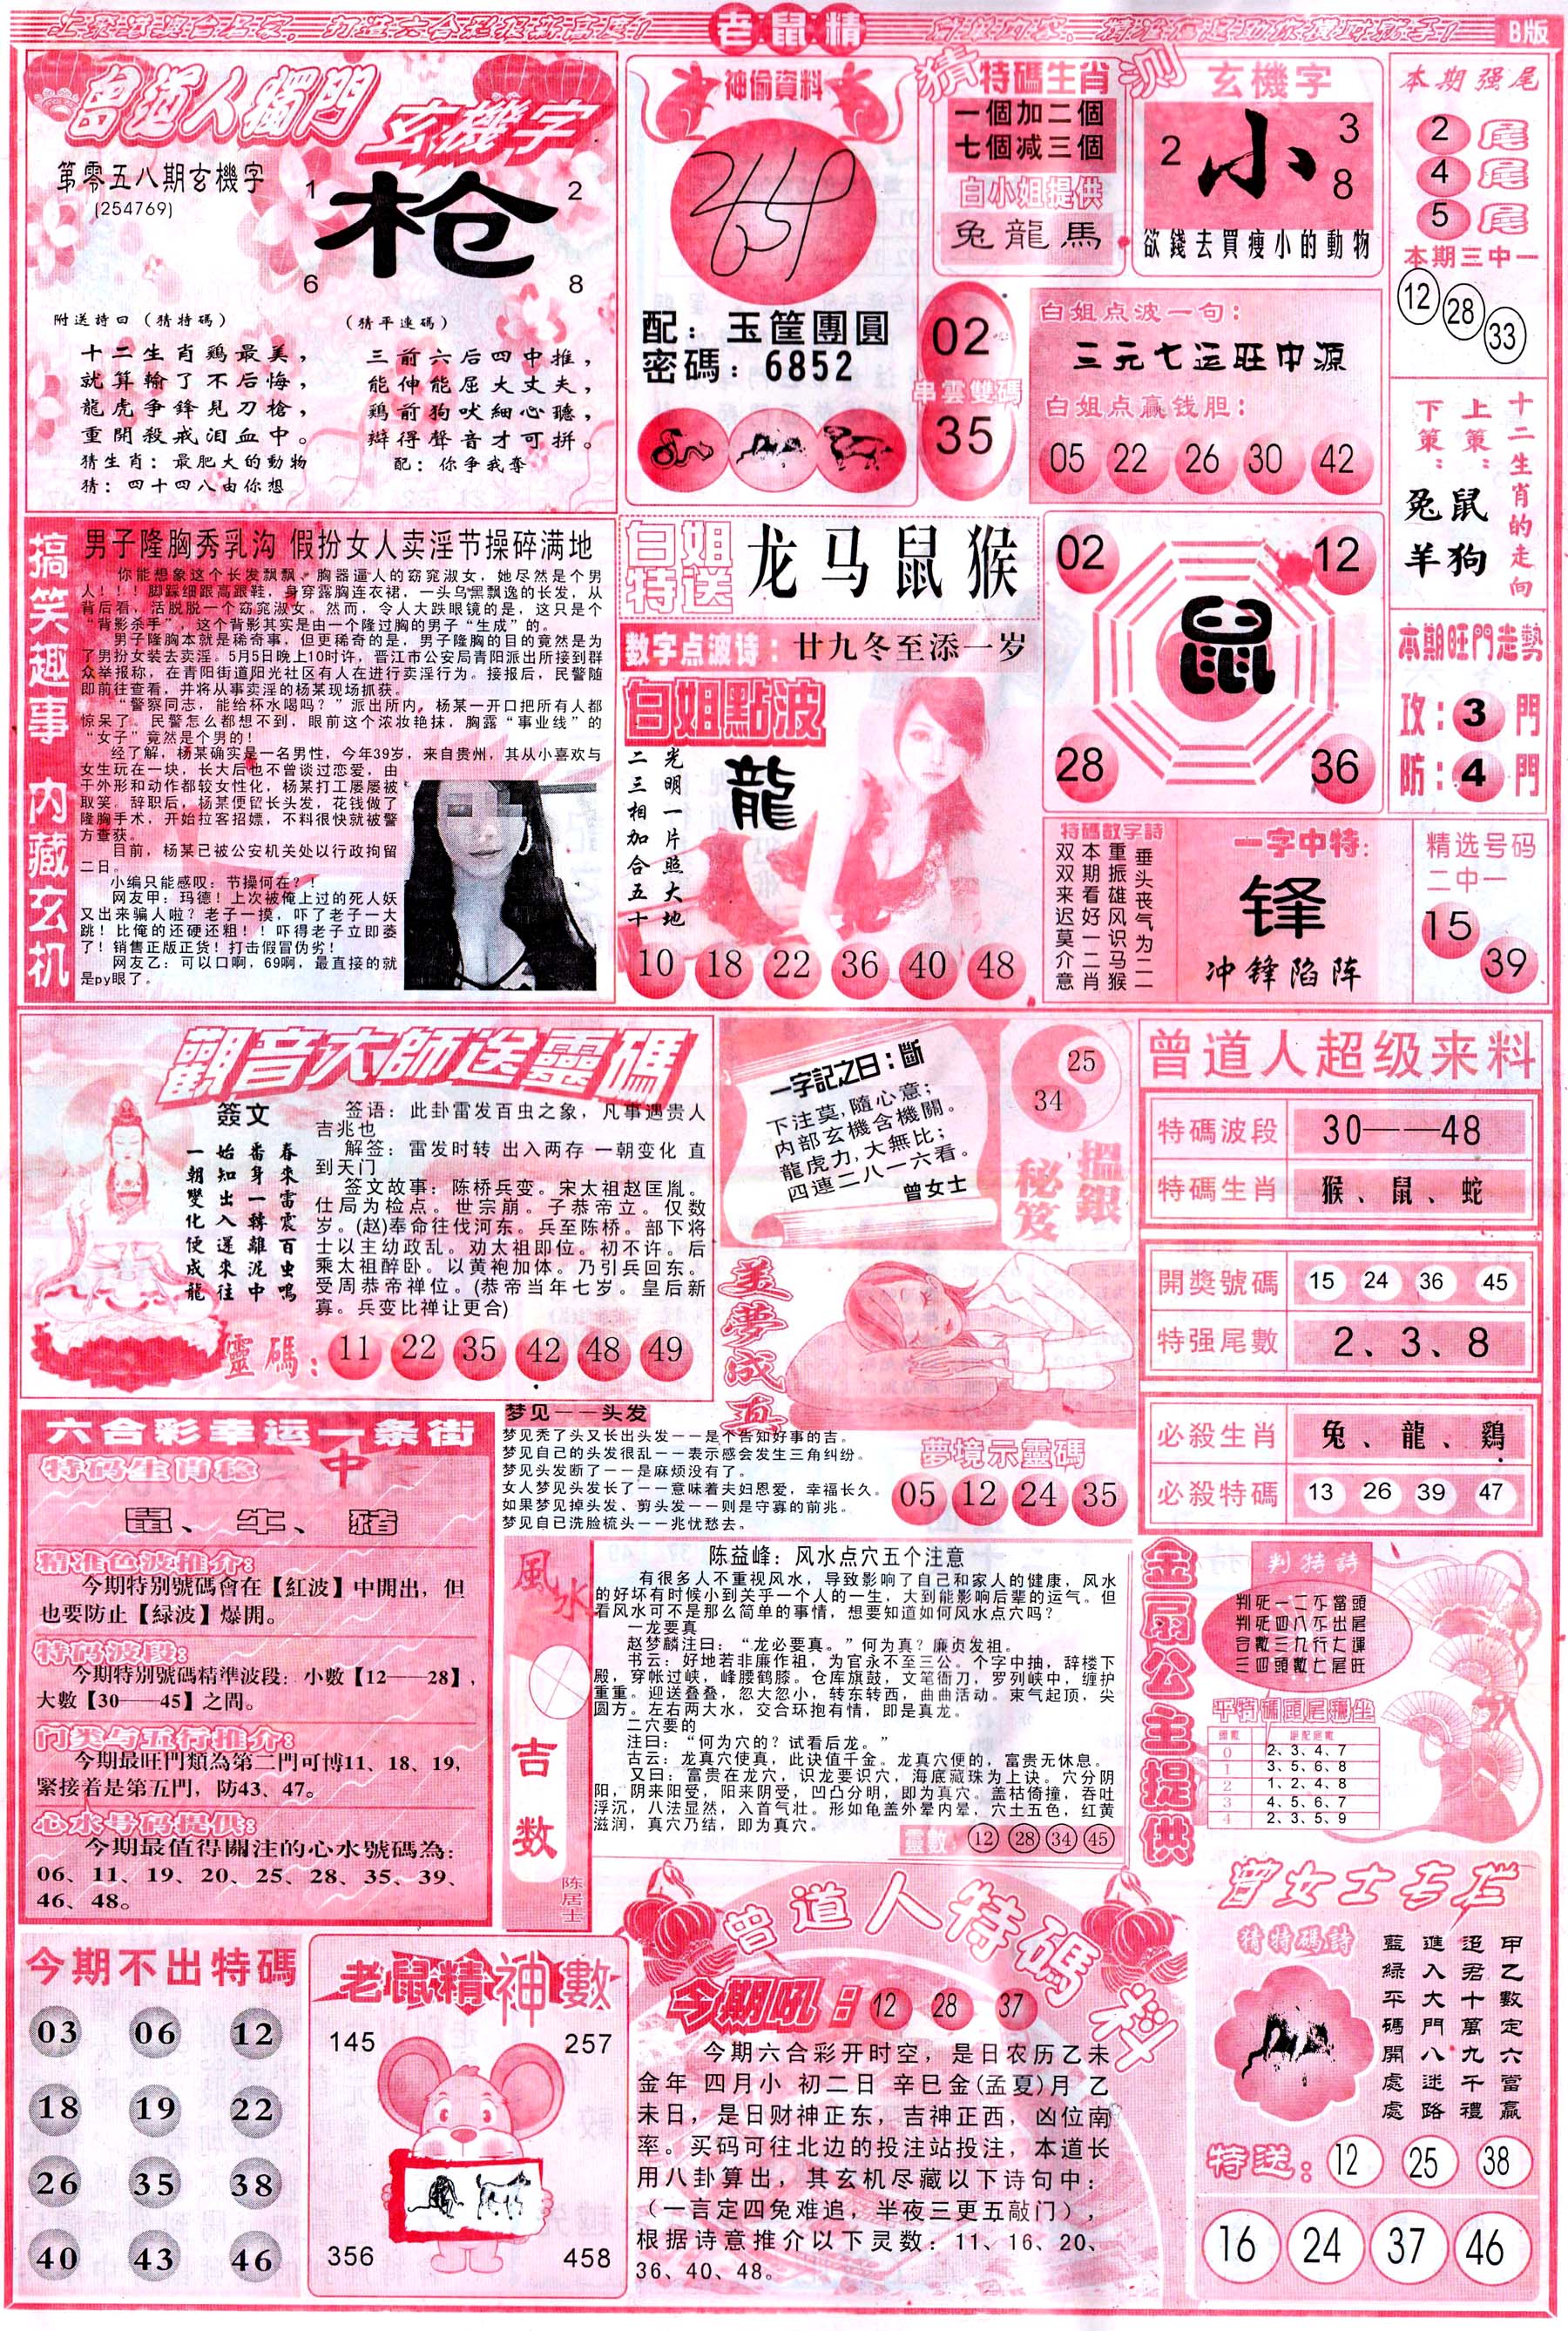 老鼠精
B版
曾道人獨門
玄機字
第零五八期玄機字
(254769)
1
枪
2
6
8
附送詩曰（猜特碼）
十二生肖鷄最美，
就算輸了不后悔，
龍虎争鋒見刀槍，
重開殺戒泪血中。
猜生肖：最肥大的動物
猜：四十四八由你想
（猜平連碼）
三前六后四中推，
能伸能屈大丈夫，
鷄前狗吠細心聽，
辯得聲音才可拼。
配：你争我奪
神偷資料
配：玉筐團圓
密碼：6852
猜
特碼生肖
測
一個加二個
七個减三個
白小姐提供
兔龍馬
玄機字
2
小
3
8
欲錢去買瘦小的動物
本期强尾
2尾
4尾
5尾
本期三中一
12
28
33
02
串雲雙碼
35
白姐点波一句：
三元七运旺中源
白姐点赢钱胆：
05 22 26 30 42
十二生肖的走向
上策：鼠狗
下策：兔羊
搞笑趣事 内藏玄机
男子隆胸秀乳沟 假扮女人卖淫节操碎满地
你能想象这个长发飘飘、胸器逼人的窈窕淑女，她尽然是个男
人！！！脚踩细跟高跟鞋，身穿露胸连衣裙，一头乌黑飘逸的长发，从
背后看，活脱脱一个窈窕淑女。然而，令人大跌眼镜的是，这只是个
“背影杀手”，这个背影其实是由一个隆过胸的男子“生成”的。
男子隆胸本就是稀奇事，但更稀奇的是，男子隆胸的目的竟然是为
了男扮女装去卖淫。5月5日晚上10时许，晋江市公安局青阳派出所接到群
众举报称，在青阳街道阳光社区有人在进行卖淫行为。接报后，民警随
即前往查看，并将从事卖淫的杨某现场抓获。
“警察同志，能给杯水喝吗？”派出所内，杨某一开口把所有人都
惊呆了。民警怎么都想不到，眼前这个浓妆艳抹，胸露“事业线”的
“女子”竟然是个男的！
经了解，杨某确实是一名男性，今年39岁，来自贵州，其从小喜欢与
女生玩在一块，长大后也不曾谈过恋爱，由
于外形和动作都较女性化，杨某打工屡屡被
取笑。辞职后，杨某便留长头发，花钱做了
隆胸手术，开始拉客招嫖，不料很快就被警
方查获。
目前，杨某已被公安机关处以行政拘留
二日。
小编只能感叹：节操何在？！
网友甲：玛德！上次被俺上过的死人妖
又出来骗人啦？老子一摸，吓了老子一大
跳！比俺的还硬还粗！！吓得老子立即萎
了！销售正版正货！打击假冒伪劣！
网友乙：可以口啊，69啊，最直接的就
是py眼了。
白姐特送
龙马鼠猴
数字点波诗：廿九冬至添一岁
白姐點波
龍
光明一片照大地
二三相加合五十
10 18 22 36 40 48
02
12
鼠
28
36
本期旺門走勢
攻：3門
防：4門
特碼数字詩
垂头丧气为二一
重振雄风识马猴
本期看好一二肖
双双来迟莫介意
一字中特：
锋
冲锋陷阵
精选号码
二中一
15
39
觀音大師送靈碼
簽文
春來雷震百虫鳴
番身一轉離泥中
始知出入還來往
一朝變化便成龍
签语：此卦雷发百虫之象，凡事遇贵人
吉兆也
解签：雷发时转 出入两存 一朝变化 直
到天门
签文故事：陈桥兵变。宋太祖赵匡胤。
仕局为检点。世宗崩。子恭帝立。仅数
岁。(赵)奉命往伐河东。兵至陈桥。部下将
士以主幼政乱。劝太祖即位。初不许。后
乘太祖醉卧。以黄袍加体。乃引兵回东。
受周恭帝禅位。(恭帝当年七岁。皇后新
寡。兵变比禅让更合)
靈碼：11 22 35 42 48 49
一字記之曰：斷
下注莫，隨心意；
内部玄機含機關。
龍虎力，大無比；
四連二八一六看。
曾女士
25
34
搵銀秘笈
美夢成真
曾道人超级来料
特碼波段 30——48
特碼生肖 猴、鼠、蛇
開獎號碼 15 24 36 45
特强尾數 2、3、8
必殺生肖 兔、龍、鷄
必殺特碼 13 26 39 47
梦见——头发
梦见秃了头又长出头发——是个告知好事的吉。
梦见自己的头发很乱——表示感会发生三角纠纷。
梦见头发断了——是麻烦没有了。
女人梦见头发长了——意味着夫妇恩爱，幸福长久。
如果梦见掉头发、剪头发——则是守寡的前兆。
梦见自己洗脸梳头——兆忧愁去。
夢境示靈碼
05 12 24 35
六合彩幸运一条街
特码生肖稳中
鼠、牛、豬
精准色波推介：
今期特别號碼會在【紅波】中開出，但
也要防止【緑波】爆開。
特码波段：
今期特别號碼精準波段：小數【12——28】，
大數【30——45】之間。
门类与五行推介：
今期最旺門類為第二門可博11、18、19，
緊接着是第五門，防43、47。
心水号码提供：
今期最值得關注的心水號碼為：
06、11、19、20、25、28、35、39、
46、48。
風水
吉数
陈居士
陈益峰：风水点穴五个注意
有很多人不重视风水，导致影响了自己和家人的健康，风水
的好坏有时候小到关乎一个人的一生，大到能影响后辈的运气。但
看风水可不是那么简单的事情，想要知道如何风水点穴吗？
一龙要真
赵梦麟注曰：“龙必要真。”何为真？廉贞发祖。
书云：好地若非廉作祖，为官永不至三公。个字中抽，辞楼下
殿，穿帐过峡，峰腰鹤膝。仓库旗鼓，文笔衙刀，罗列峡中，缠护
重重。迎送叠叠，忽大忽小，转东转西，曲曲活动。束气起顶，尖
圆方。左右两大水，交合环抱有情，即是真龙。
二穴要的
注曰：“何为穴的？试看后龙。”
古云：龙真穴使真，此诀值千金。龙真穴便的，富贵无休息。
又曰：富贵在龙穴，识龙要识穴，海底藏珠为上诀。穴分阴
阳，阴来阳受，阳来阴受，凹凸分明，即为真穴。盖枯倚撞，吞吐
浮沉，八法显然，入首气壮。形如龟盖外晕内晕，穴土五色，红黄
滋润，真穴乃结，即为真穴。
靈數：12 28 34 45
金扇公主提供
判特詩
判死一二不當頭
判死四八不出尾
合數三九行七運
三四頭數七尾旺
平特碼頭尾獨坐
0 2、3、4、7
1 3、5、6、8
2 1、2、4、8
3 4、5、6、7
4 2、3、5、9
今期不出特碼
03 06 12
18 19 22
26 35 38
40 43 46
老鼠精神數
145
257
356
458
曾道人特碼料
今期吼：12 28 37
今期六合彩开时空，是日农历乙未
金年 四月小 初二日 辛巳金(孟夏)月 乙
未日，是日财神正东，吉神正西，凶位南
率。买码可往北边的投注站投注，本道长
用八卦算出，其玄机尽藏以下诗句中：
（一言定四兔难追，半夜三更五敲门），
根据诗意推介以下灵数：11、16、20、
36、40、48。
曾女士专栏
猜特碼詩
甲乙數定六當贏
迢君十萬九千禮
進入大門八迷路
藍緑平碼開處處
特送：12 25 38
16 24 37 46